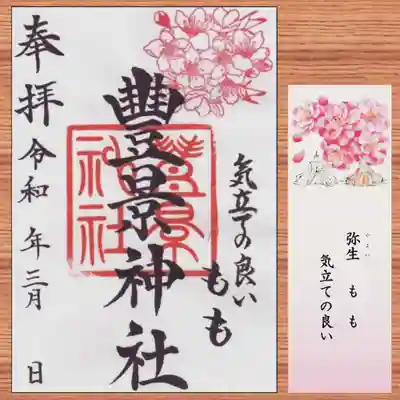 奉拝
令和 年三月 日
豐景神社
豐景神社
気立ての良い
もも
弥生 もも
やよい
気立ての良い